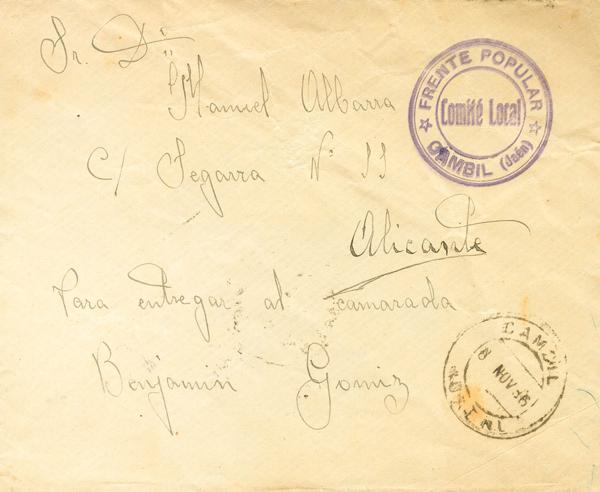 Sr. Dn
Manuel Albarra
C/ Segarra Nº 33
Alicante
Para entregar al camarada
Benjamin Gomiz
FRENTE POPULAR
Comité Local
CAMBIL (Jaén)
CAMBIL
8 NOV 36